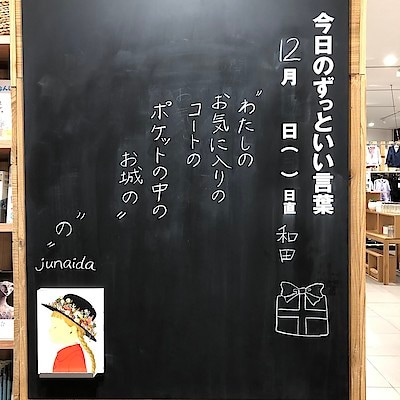 今日のずっといい言葉
12月　日（　）日直 和田
〝わたしの
お気に入りの
コートの
ポケットの中の
お城の〟
〝の〟
junaida